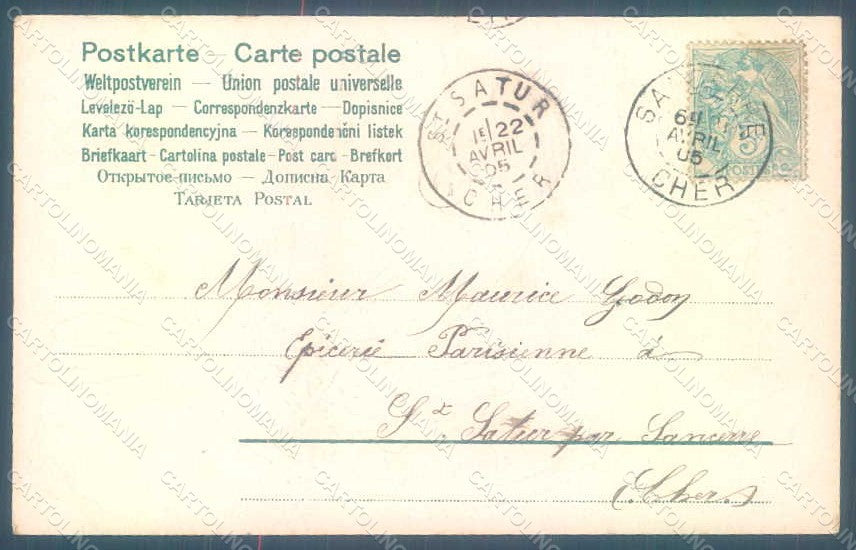 Postkarte — Carte postale
Weltpostverein — Union postale universelle
Levelező-Lap — Correspondenzkarte — Dopisnice
Karta korespondencyjna — Korespondenční listek
Briefkaart - Cartolina postale - Post card - Brefkort
Открытое письмо — Дописна Карта
Tarjeta Postal
St SATUR
1E 22
AVRIL
05
CHER
SANCERRE
AVRIL
05
CHER
5
POSTES
Monsieur Maurice Godon
Epicerie Parisienne à
St Satur par Sancerre
(Cher)
CARTOLINOMANIA